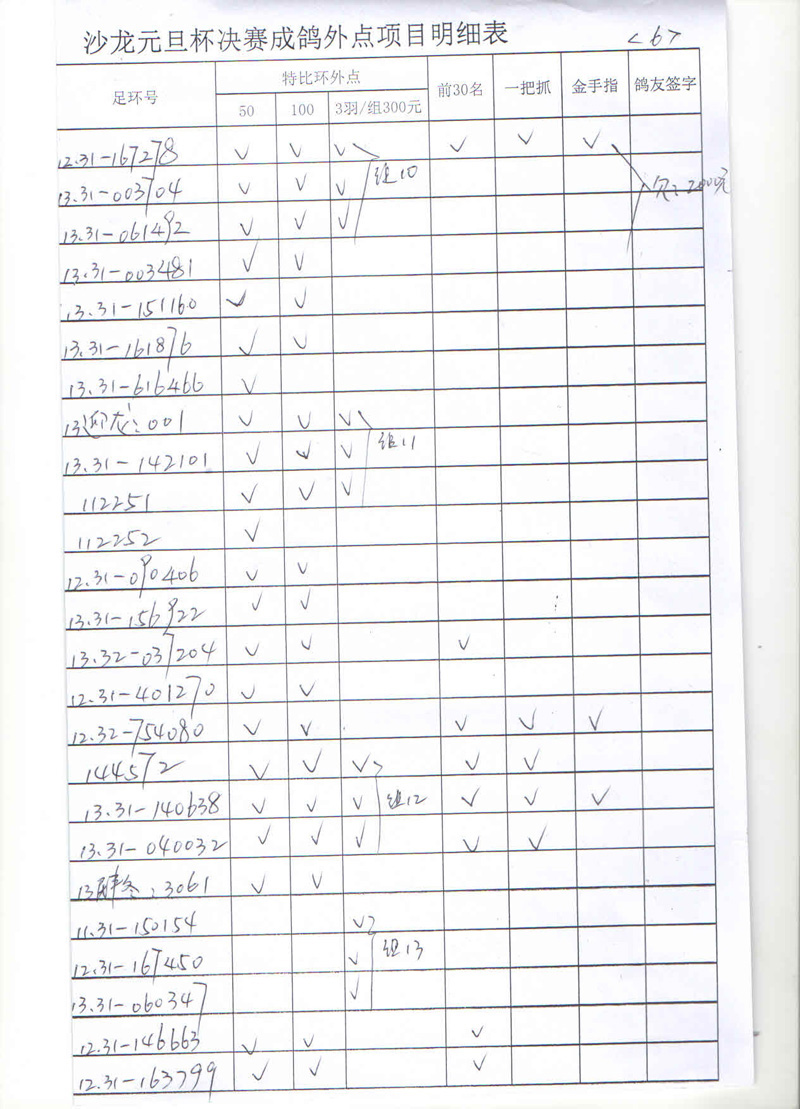 沙龙元旦杯决赛成鸽外点项目明细表 <6>
足环号 特比环外点 前30名 一把抓 金手指 鸽友签字
50 100 3羽/组300元
12.31-167278 ✓ ✓ ✓ ✓ ✓ ✓
13.31-003704 ✓ ✓ ✓ 组10 欠:2000元
13.31-061492 ✓ ✓ ✓
13.31-003481 ✓ ✓
13.31-151160 ✓ ✓
13.31-161876 ✓ ✓
13.31-616466 ✓
13迎龙:001 ✓ ✓ ✓
13.31-142101 ✓ ✓ ✓ 组11
112251 ✓ ✓ ✓
112252 ✓
12.31-090406 ✓ ✓
13.31-156922 ✓ ✓
13.32-037204 ✓ ✓ ✓
12.31-401270 ✓ ✓
12.32-754080 ✓ ✓ ✓ ✓ ✓
144572 ✓ ✓ ✓ ✓ ✓
13.31-140638 ✓ ✓ ✓ 组12 ✓ ✓ ✓
13.31-040032 ✓ ✓ ✓ ✓ ✓
13 :3061 ✓ ✓
11.31-150154 ✓
12.31-167450 ✓ 组13
13.31-060347 ✓
12.31-146663 ✓ ✓ ✓
12.31-163799 ✓ ✓ ✓